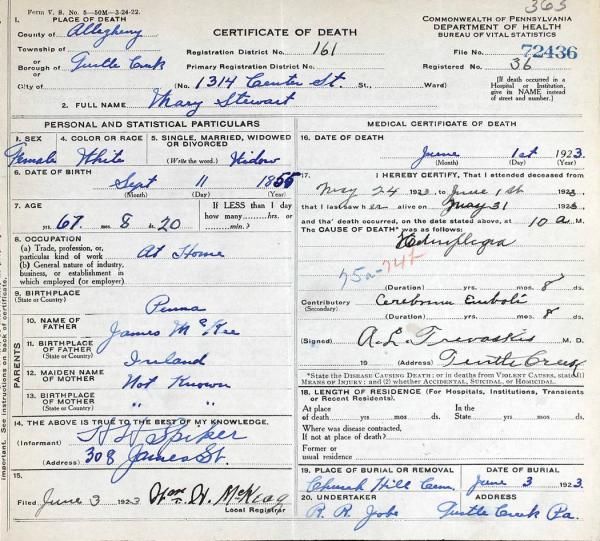 Form V. S. No. 5—50M—3-24-22.
363
1. PLACE OF DEATH
County of Allegheny
Township of
or
Borough of Turtle Creek
or
City of
CERTIFICATE OF DEATH
Registration District No. 161
Primary Registration District No.
(No. 1314 Center St. St., Ward)
COMMONWEALTH OF PENNSYLVANIA
DEPARTMENT OF HEALTH
BUREAU OF VITAL STATISTICS
File No. 72436
Registered No. 36
[If death occurred in a Hospital or Institution, give its NAME instead of street and number.]
2. FULL NAME Mary Stewart
PERSONAL AND STATISTICAL PARTICULARS
3. SEX Female
4. COLOR OR RACE White
5. SINGLE, MARRIED, WIDOWED OR DIVORCED
(Write the word.) Widow
6. DATE OF BIRTH
Sept 11 1855
(Month) (Day) (Year)
7. AGE
67 yrs. 8 mos. 20
If LESS than 1 day how many hrs. or min.?
8. OCCUPATION
(a) Trade, profession, or, particular kind of work At Home
(b) General nature of industry, business, or establishment in which employed (or employer)
9. BIRTHPLACE
(State or Country) Penna
PARENTS
10. NAME OF FATHER James McKee
11. BIRTHPLACE OF FATHER
(State or Country) Ireland
12. MAIDEN NAME OF MOTHER Not Known
13. BIRTHPLACE OF MOTHER
(State or Country) " "
14. THE ABOVE IS TRUE TO THE BEST OF MY KNOWLEDGE.
(Informant) H W Spiker
(Address) 308 James St.
15.
Filed June 3 1923 Wm. W. McKeag
Local Registrar
MEDICAL CERTIFICATE OF DEATH
16. DATE OF DEATH
June 1st 1923
(Month) (Day) (Year)
17. I HEREBY CERTIFY, That I attended deceased from
May 24 1923 to June 1st 1923
that I last saw her alive on May 31 1923
and that death occurred, on the date stated above, at 10 a M.
The CAUSE OF DEATH* was as follows:
Hemiplegia
75a-
(Duration) yrs. mos. 8 ds.
Contributory Cerebral Emboli
(Secondary)
(Duration) yrs. mos. 8 ds.
(Signed) A. L. Trevaskis M. D.
19 (Address) Turtle Creek
*State the DISEASE CAUSING DEATH; or in deaths from VIOLENT CAUSES, state (1) MEANS OF INJURY; and (2) whether ACCIDENTAL, SUICIDAL, OR HOMICIDAL.
18. LENGTH OF RESIDENCE (For Hospitals, Institutions, Transients or Recent Residents).
At place of death yrs mos ds. In the State yrs. mos. ds.
Where was disease contracted,
If not at place of death?
Former or
usual residence
19. PLACE OF BURIAL OR REMOVAL
Church Hill Cem.
DATE OF BURIAL
June 3 1923
20. UNDERTAKER
R. R. Jobe
ADDRESS
Turtle Creek Pa.
important. See instructions on back of certificate.